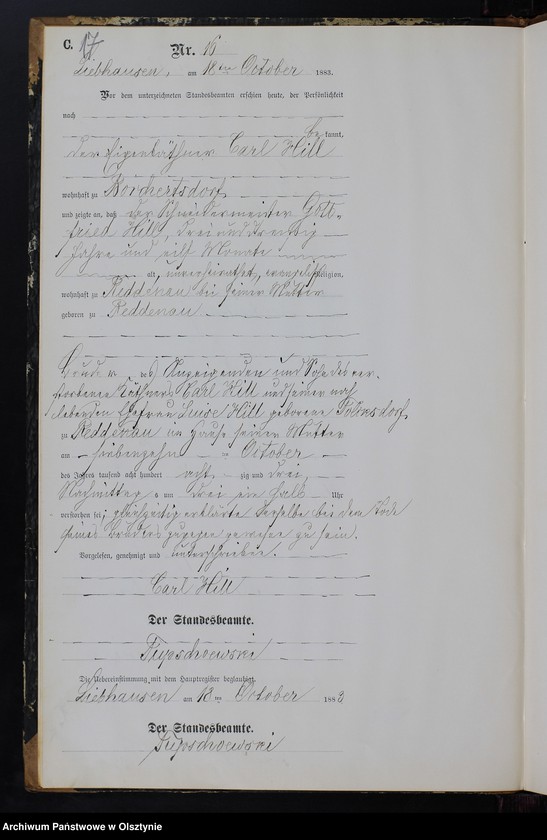 C. 17
Nr. 16
Liebhausen, am 18ten October 1883.
Vor dem unterzeichneten Standesbeamten erschien heute, der Persönlichkeit
nach
be kannt,
der Eigenkäthner Carl Hill
wohnhaft zu Borchertsdorf
und zeigte an, daß der Schneidermeister Gott-
fried Hill, drei und dreißig
Jahre und eilf Monate
alt, unverheirathet, evangelischer Religion,
wohnhaft zu Reddenau bei seiner Mutter
geboren zu Reddenau
Bruder des Anzeigenden und Sohn des ver-
storbenen Käthners Carl Hill und seiner noch
lebenden Ehefrau Luise Hill geborene
zu Reddenau im Hause seiner Mutter
am siebenzehn ten October
des Jahres tausend acht hundert acht zig und drei
Nachmittags um drei ein halb Uhr
verstorben sei; gleichzeitig erklärte derselbe bei dem Tode
seines Bruders zugegen gewesen zu sein.
Vorgelesen, genehmigt und unterschrieben.
Carl Hill
Der Standesbeamte.
Die Uebereinstimmung mit dem Hauptregister beglaubigt.
Liebhausen am 18ten October 1883
Der Standesbeamte.
Archiwum Państwowe w Olsztynie